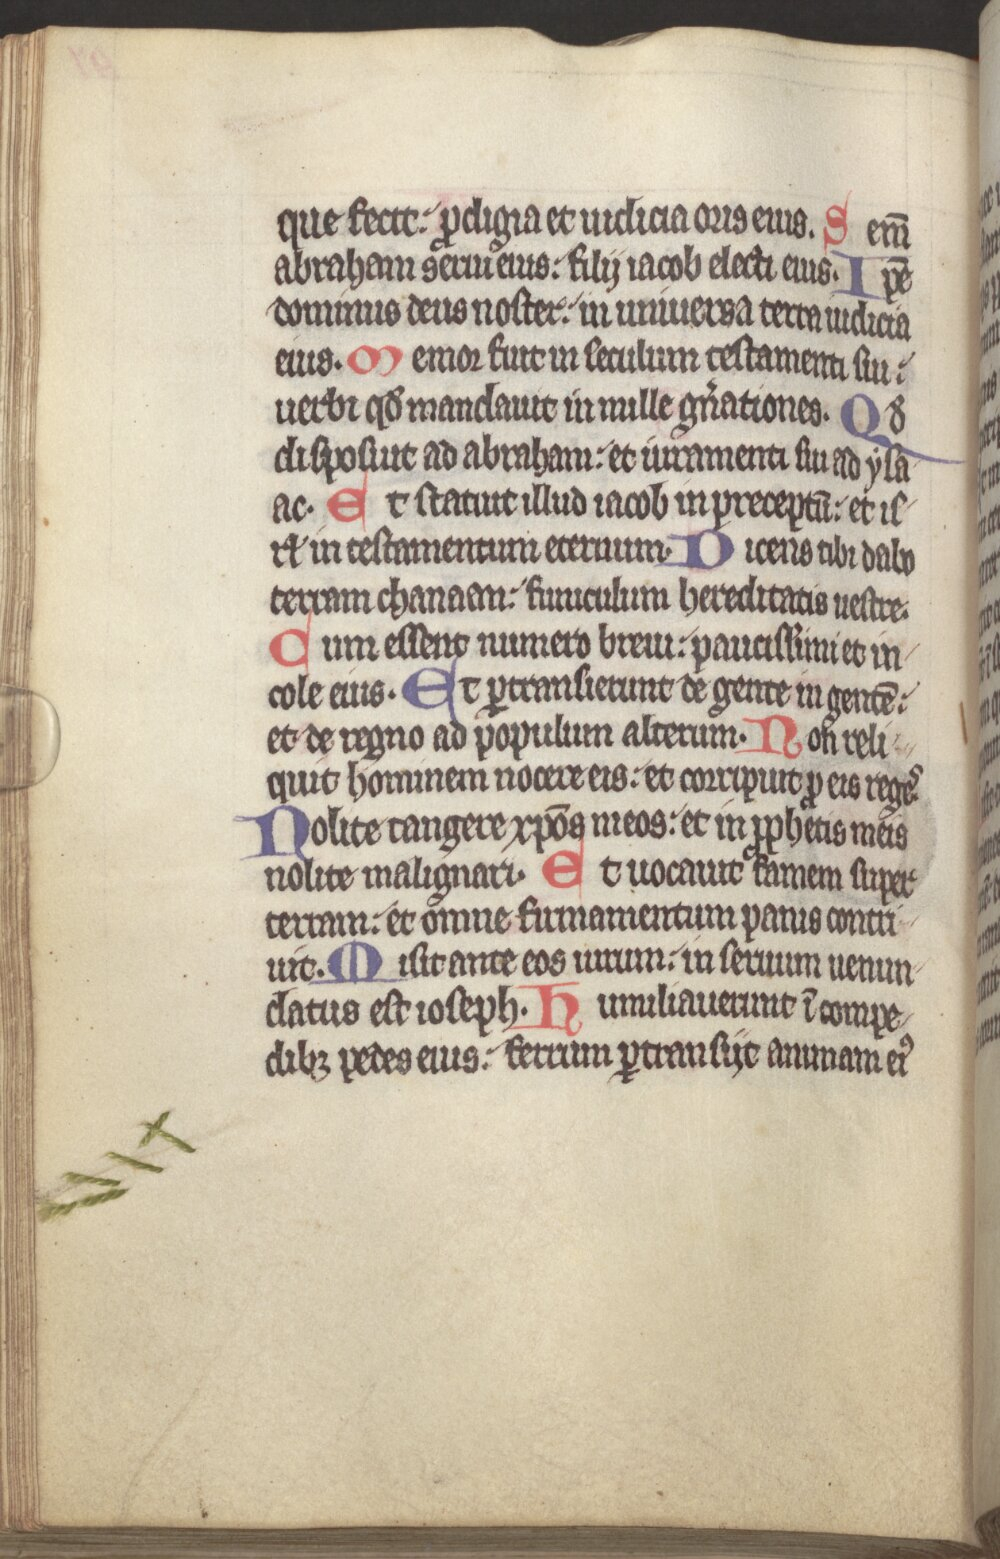 que fecit: ꝓdigia et iudicia oris eius. Sem̅
abraham serui eius: filij iacob electi eius. Ip̅e
dominus deus noster: in uniuersa terra iudicia
eius. Memor fuit in seculum testamenti sui:
uerbi qd̅ mandauit in mille gn̅ationes. Qd̅
disposuit ad abraham: et iuramenti sui ad ysa
ac. Et statuit illud iacob in preceptu̅: et is
rl̅ in testamentum eternum. Dicens tibi dabo
terram chanaan: funiculum hereditatis uestre.
Cum essent numero breui: paucissimi et in
cole eius. Et ꝑtransierunt de gente in gente̅:
et de regno ad populum alterum. Non reli
quit hominem nocere eis: et corripuit ꝓ eis reges.
Nolite tangere xp̅os meos: et in ꝓphetis meis
nolite malignari. Et uocauit famem super
terram: et omne firmamentum panis contri
uit. Misit ante eos uirum: in seruum uenun
datus est ioseph. Humiliauerunt i̅ compe
dibꝫ pedes eius: ferrum ꝑtransijt animam eiꝰ